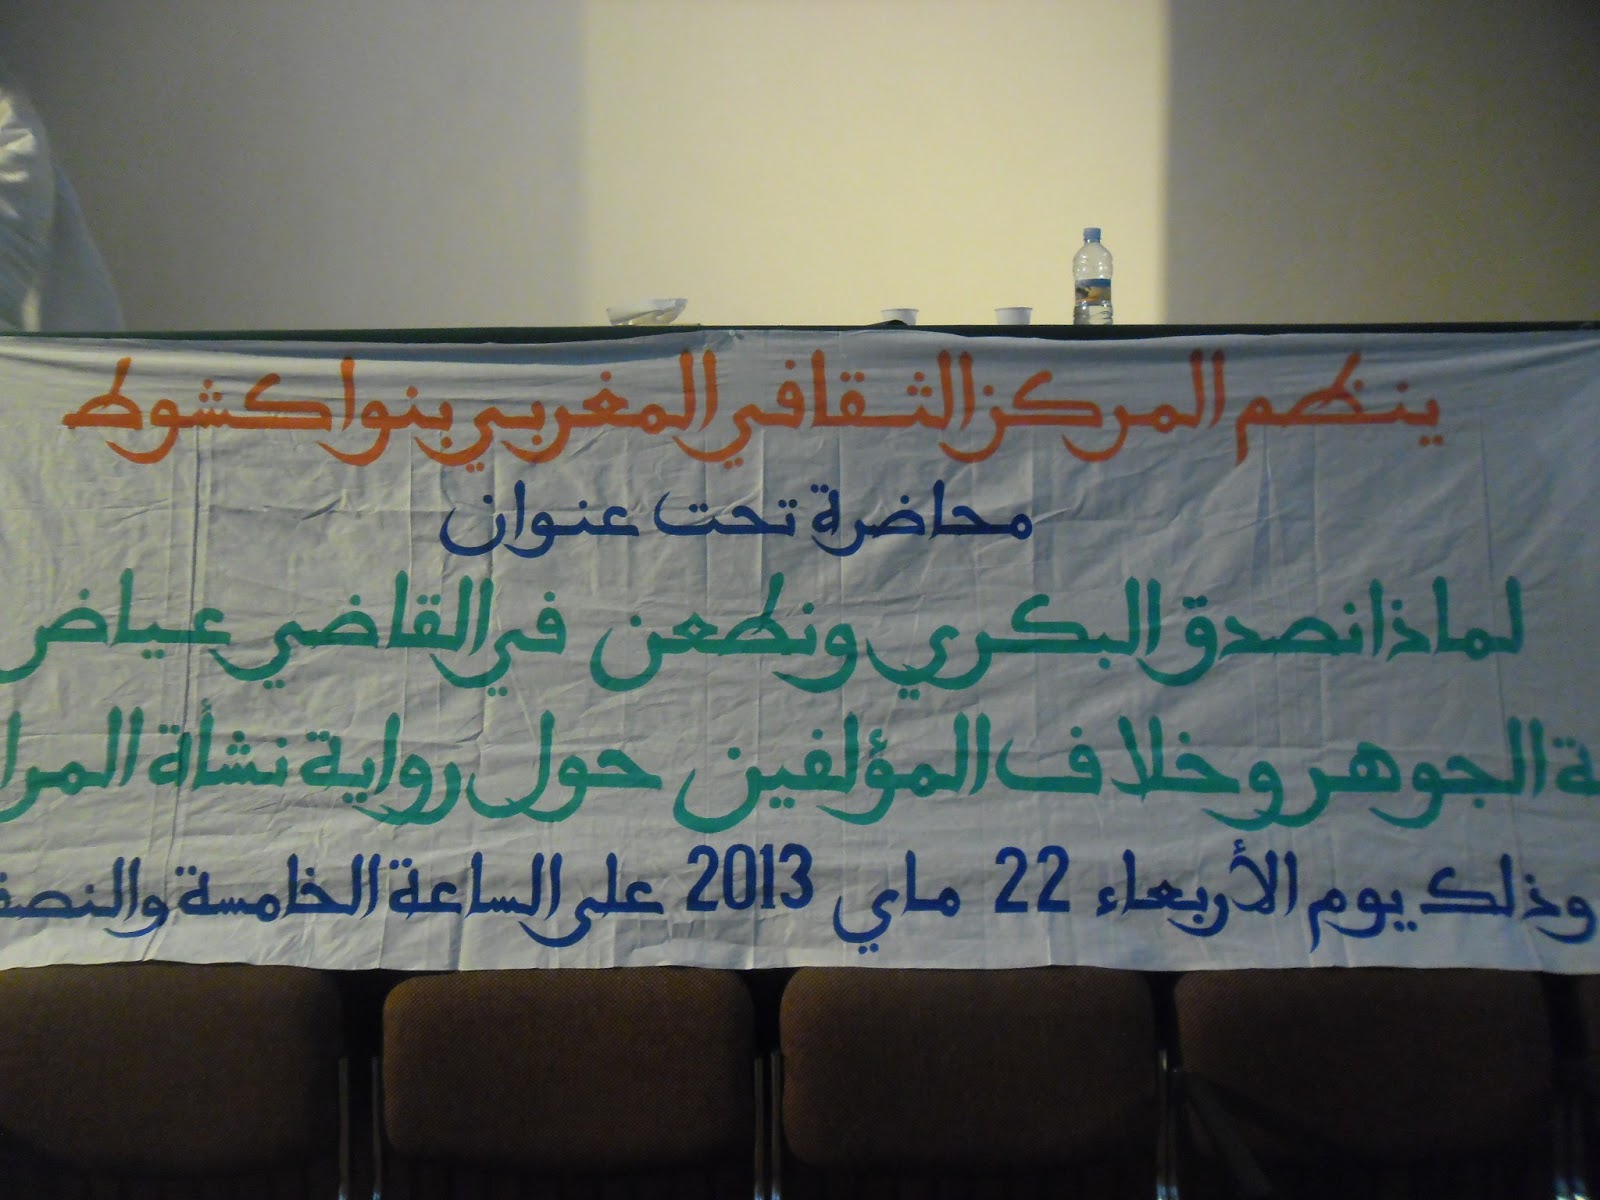 ينظم المركز الثقافي المغربي بنواكشوط
محاضرة تحت عنوان
لماذا نصدق البكري ونطعن في القاضي عياض
ـة الجوهر وخلاف المؤلفين حول رواية نشأة المرا
وذلك يوم الأربعاء 22 ماي 2013 على الساعة الخامسة والنصف